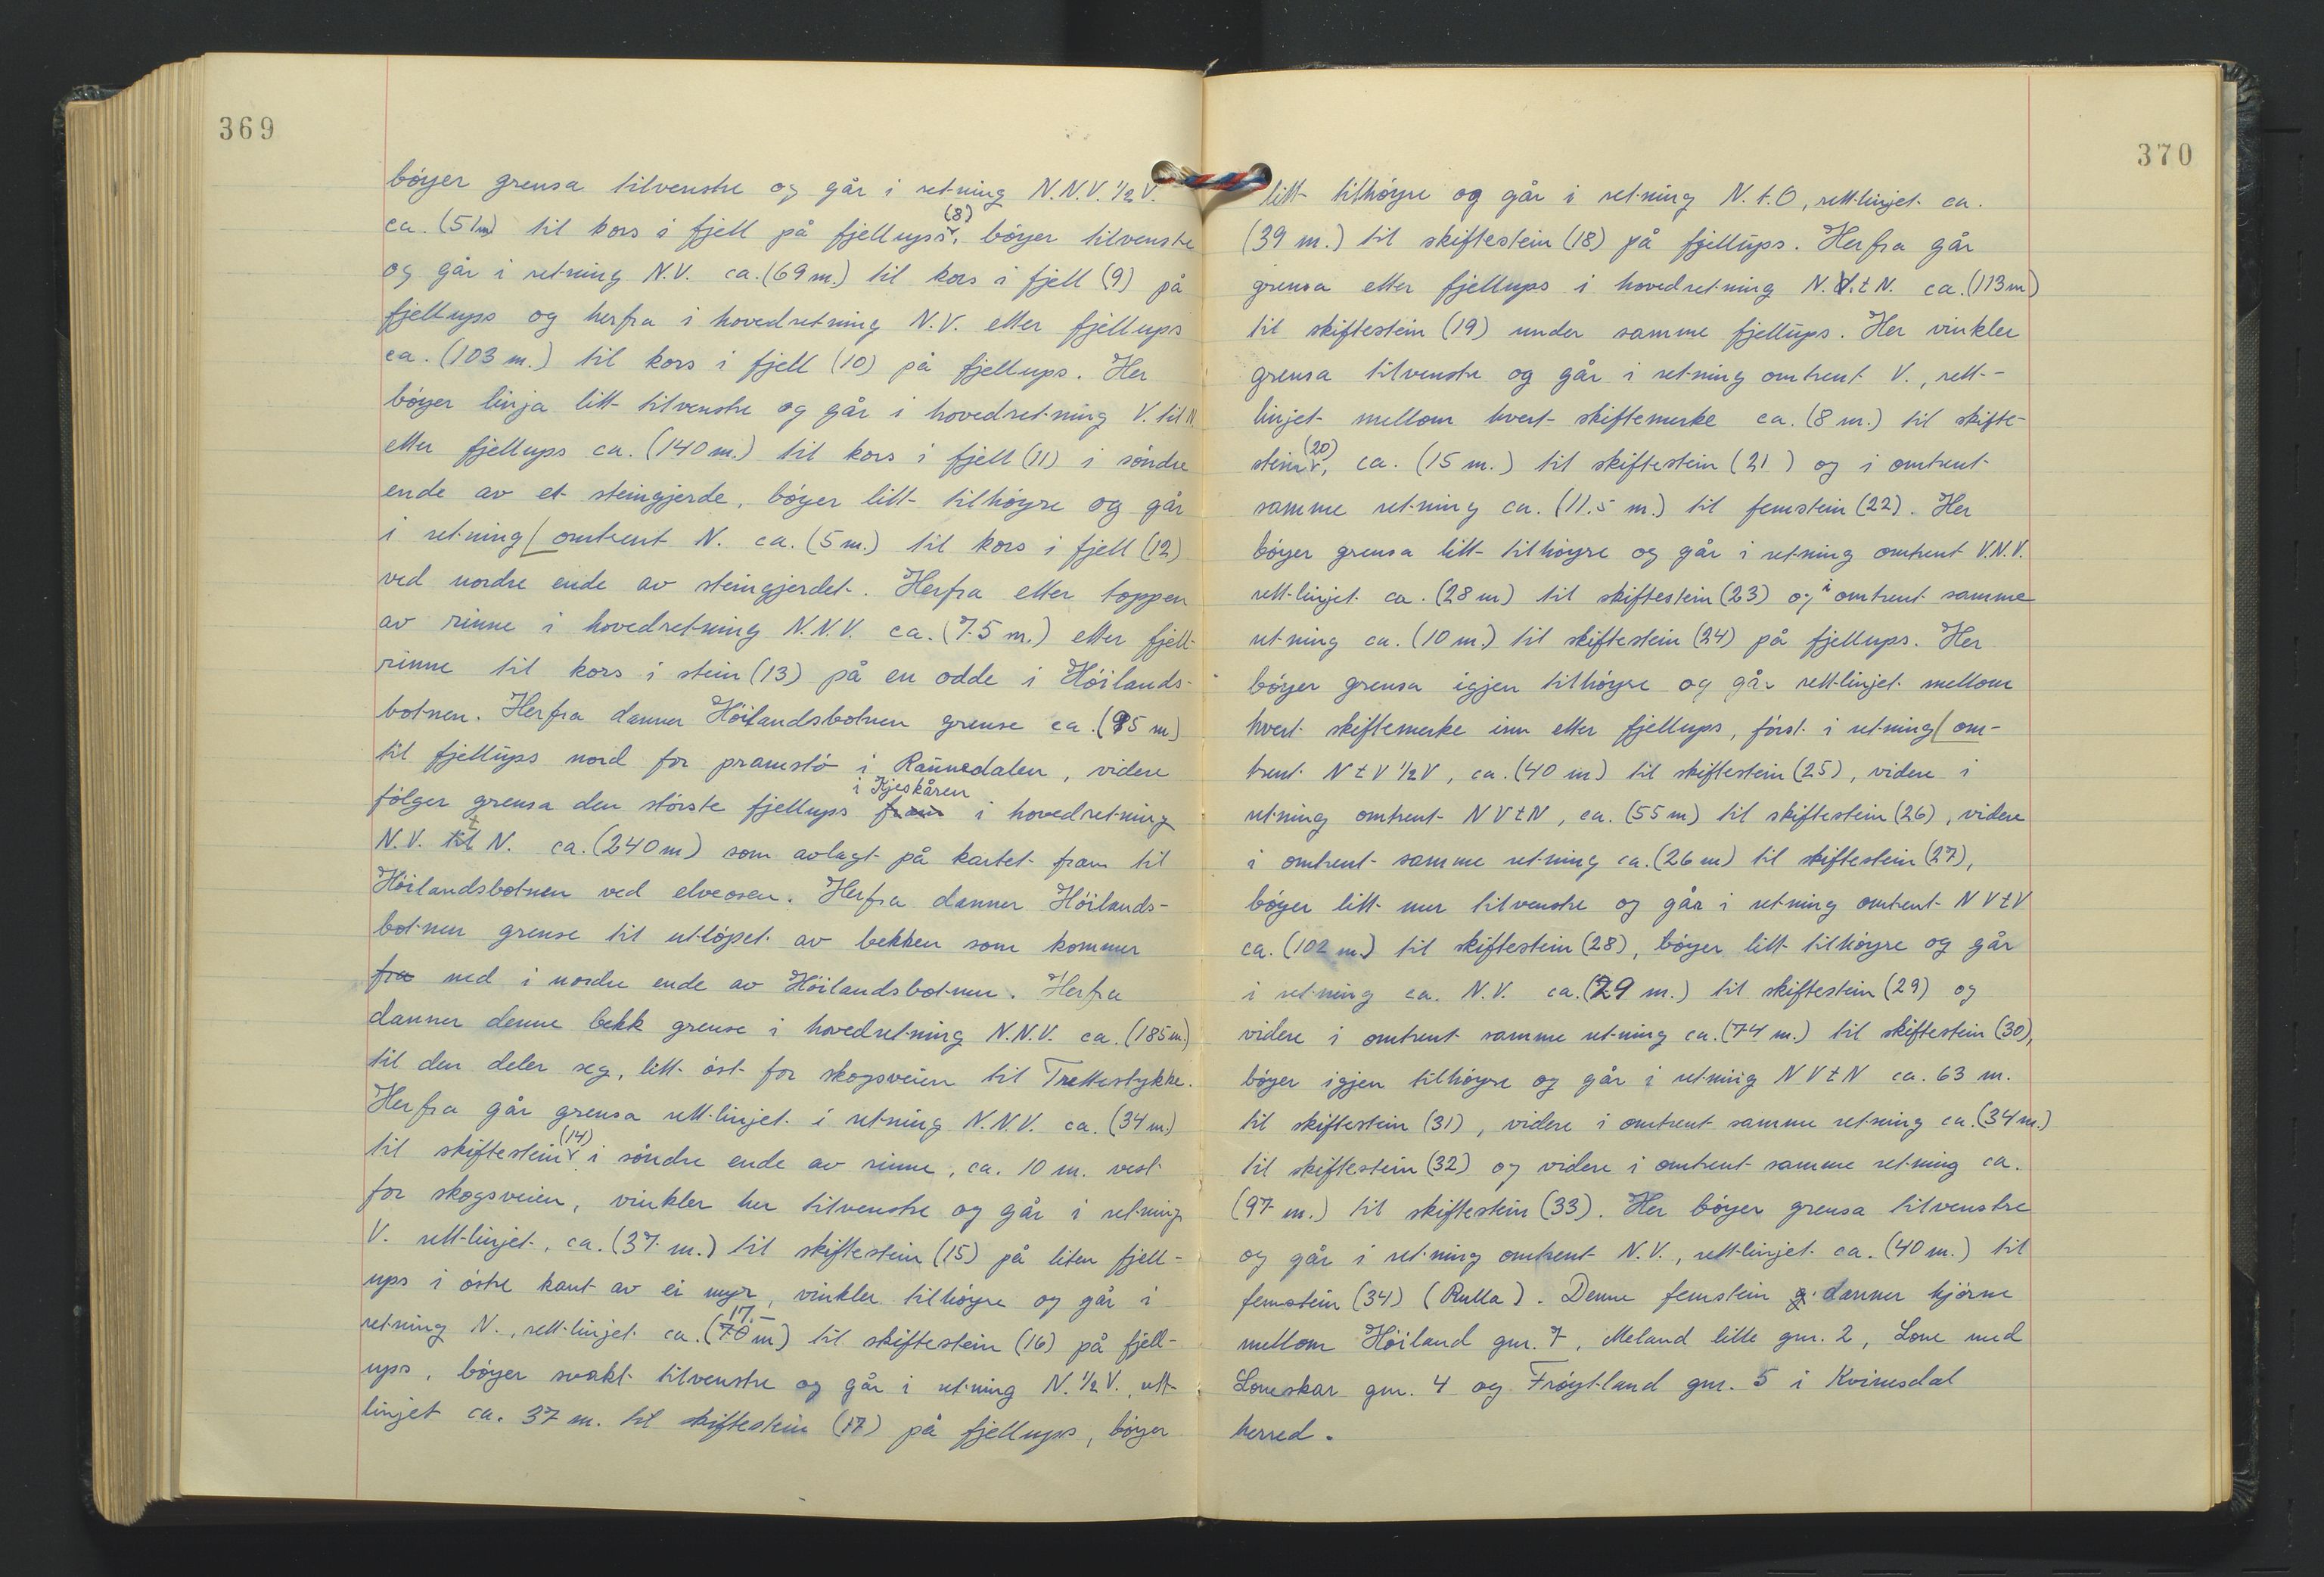 369
bóyer grensa tilvenstre og går i retning N.N.V. ½ V.
ca. (51m) til kors i fjell på fjellups (8), bóyer tilvenstre
og går i retning N.V. ca. (69 m.) til kors i fjell (9) på
fjellups og herfra i hovedretning N.V. etter fjellups
ca. (103 m.) til kors i fjell (10) på fjellups. Her
bóyer linja litt tilvenstre og går i hovedretning V. til N
etter fjellups ca. (140 m.) til kors i fjell (11) i sóndre
ende av et steingjerde, bóyer litt tilhóyre og går
i retning omtrent N. ca. (5 m.) til kors i fjell (12)
ved nordre ende av steingjerdet. Herfra etter toppen
av rinne i hovedretning N.N.V. ca. (7.5 m.) etter fjell-
rinne til kors i stein (13) på en odde i Hóilands-
botnen. Herfra danner Hóilandsbotnen grense ca. (95 m)
til fjellups nord for pramstó i Rannedalen, videre
fólger grensa den stórste fjellups i Kjeskåren i hovedretning
N.V. t N. ca. (240 m) som avlagt på kartet fram til
Hóilandsbotnen ved elveosen. Herfra danner Hóilands-
botnen grense til utlópet av bekken som kommer
fra ned i nordre ende av Hóilandsbotnen. Herfra
danner denne bekk grense i hovedretning N.N.V. ca. (185 m.)
til den deler seg, litt óst for skogsveien til Trettestykke.
Herfra går grensa rettlinjet i retning N.N.V. ca. (34 m.)
til skiftestein (14) i sóndre ende av rinne, ca. 10 m. vest
for skogsveien, vinkler her tilvenstre og går i retning
V. rettlinjet, ca. (37 m.) til skiftestein (15) på liten fjell-
ups i óstre kant av ei myr, vinkler tilhóyre og går i
retning N., rettlinjet ca. (17 m) til skiftestein (16) på fjell-
ups, bóyer svakt tilvenstre og går i retning N. ½ V., rett-
linjet ca. 37 m. til skiftestein (17) på fjellups, bóyer
370
litt tilhóyre og går i retning N. t. O, rettlinjet ca.
(39 m.) til skiftestein (18) på fjellups. Herfra går
grensa etter fjellups i hovedretning N.V. t N. ca. (113 m)
til skiftestein (19) under samme fjellups. Her vinkler
grensa tilvenstre og går i retning omtrent V., rett-
linjet mellom hvert skiftemerke ca. (8 m.) til skifte-
stein (20), ca. (15 m.) til skiftestein (21) og i omtrent
samme retning ca. (11.5 m.) til femstein (22). Her
bóyer grensa litt tilhóyre og går i retning omtrent V.N.V.
rettlinjet ca. (28 m) til skiftestein (23) og i omtrent samme
retning ca. (10 m.) til skiftestein (24) på fjellups. Her
bóyer grensa igjen tilhóyre og går rettlinjet mellom
hvert skiftemerke inn etter fjellups, fórst i retning om-
trent N t V ½ V, ca. (40 m) til skiftestein (25), videre i
retning omtrent N V t N, ca. (55 m) til skiftestein (26), videre
i omtrent samme retning ca. (26 m) til skiftestein (27),
bóyer litt mer tilvenstre og går i retning omtrent N V t V
ca. (102 m.) til skiftestein (28), bóyer litt tilhóyre og går
i retning ca. N.V. ca. (29 m.) til skiftestein (29) og
videre i omtrent samme retning ca. (74 m.) til skiftestein (30),
bóyer igjen tilhóyre og går i retning N V t N ca. 63 m.
til skiftestein (31), videre i omtrent samme retning ca. (34 m.)
til skiftestein (32) og videre i omtrent samme retning ca.
(97 m.) til skiftestein (33). Her bóyer grensa tilvenstre
og går i retning omtrent N.V., rettlinjet ca. (40 m.) til
femstein (34) (Rulla). Denne femstein danner hjórne
mellom Hóiland gnr. 7, Meland lille gnr. 2, Lone med
Loneskar gnr. 4 og Fróytland gnr. 5 i Kvinesdal
herred.